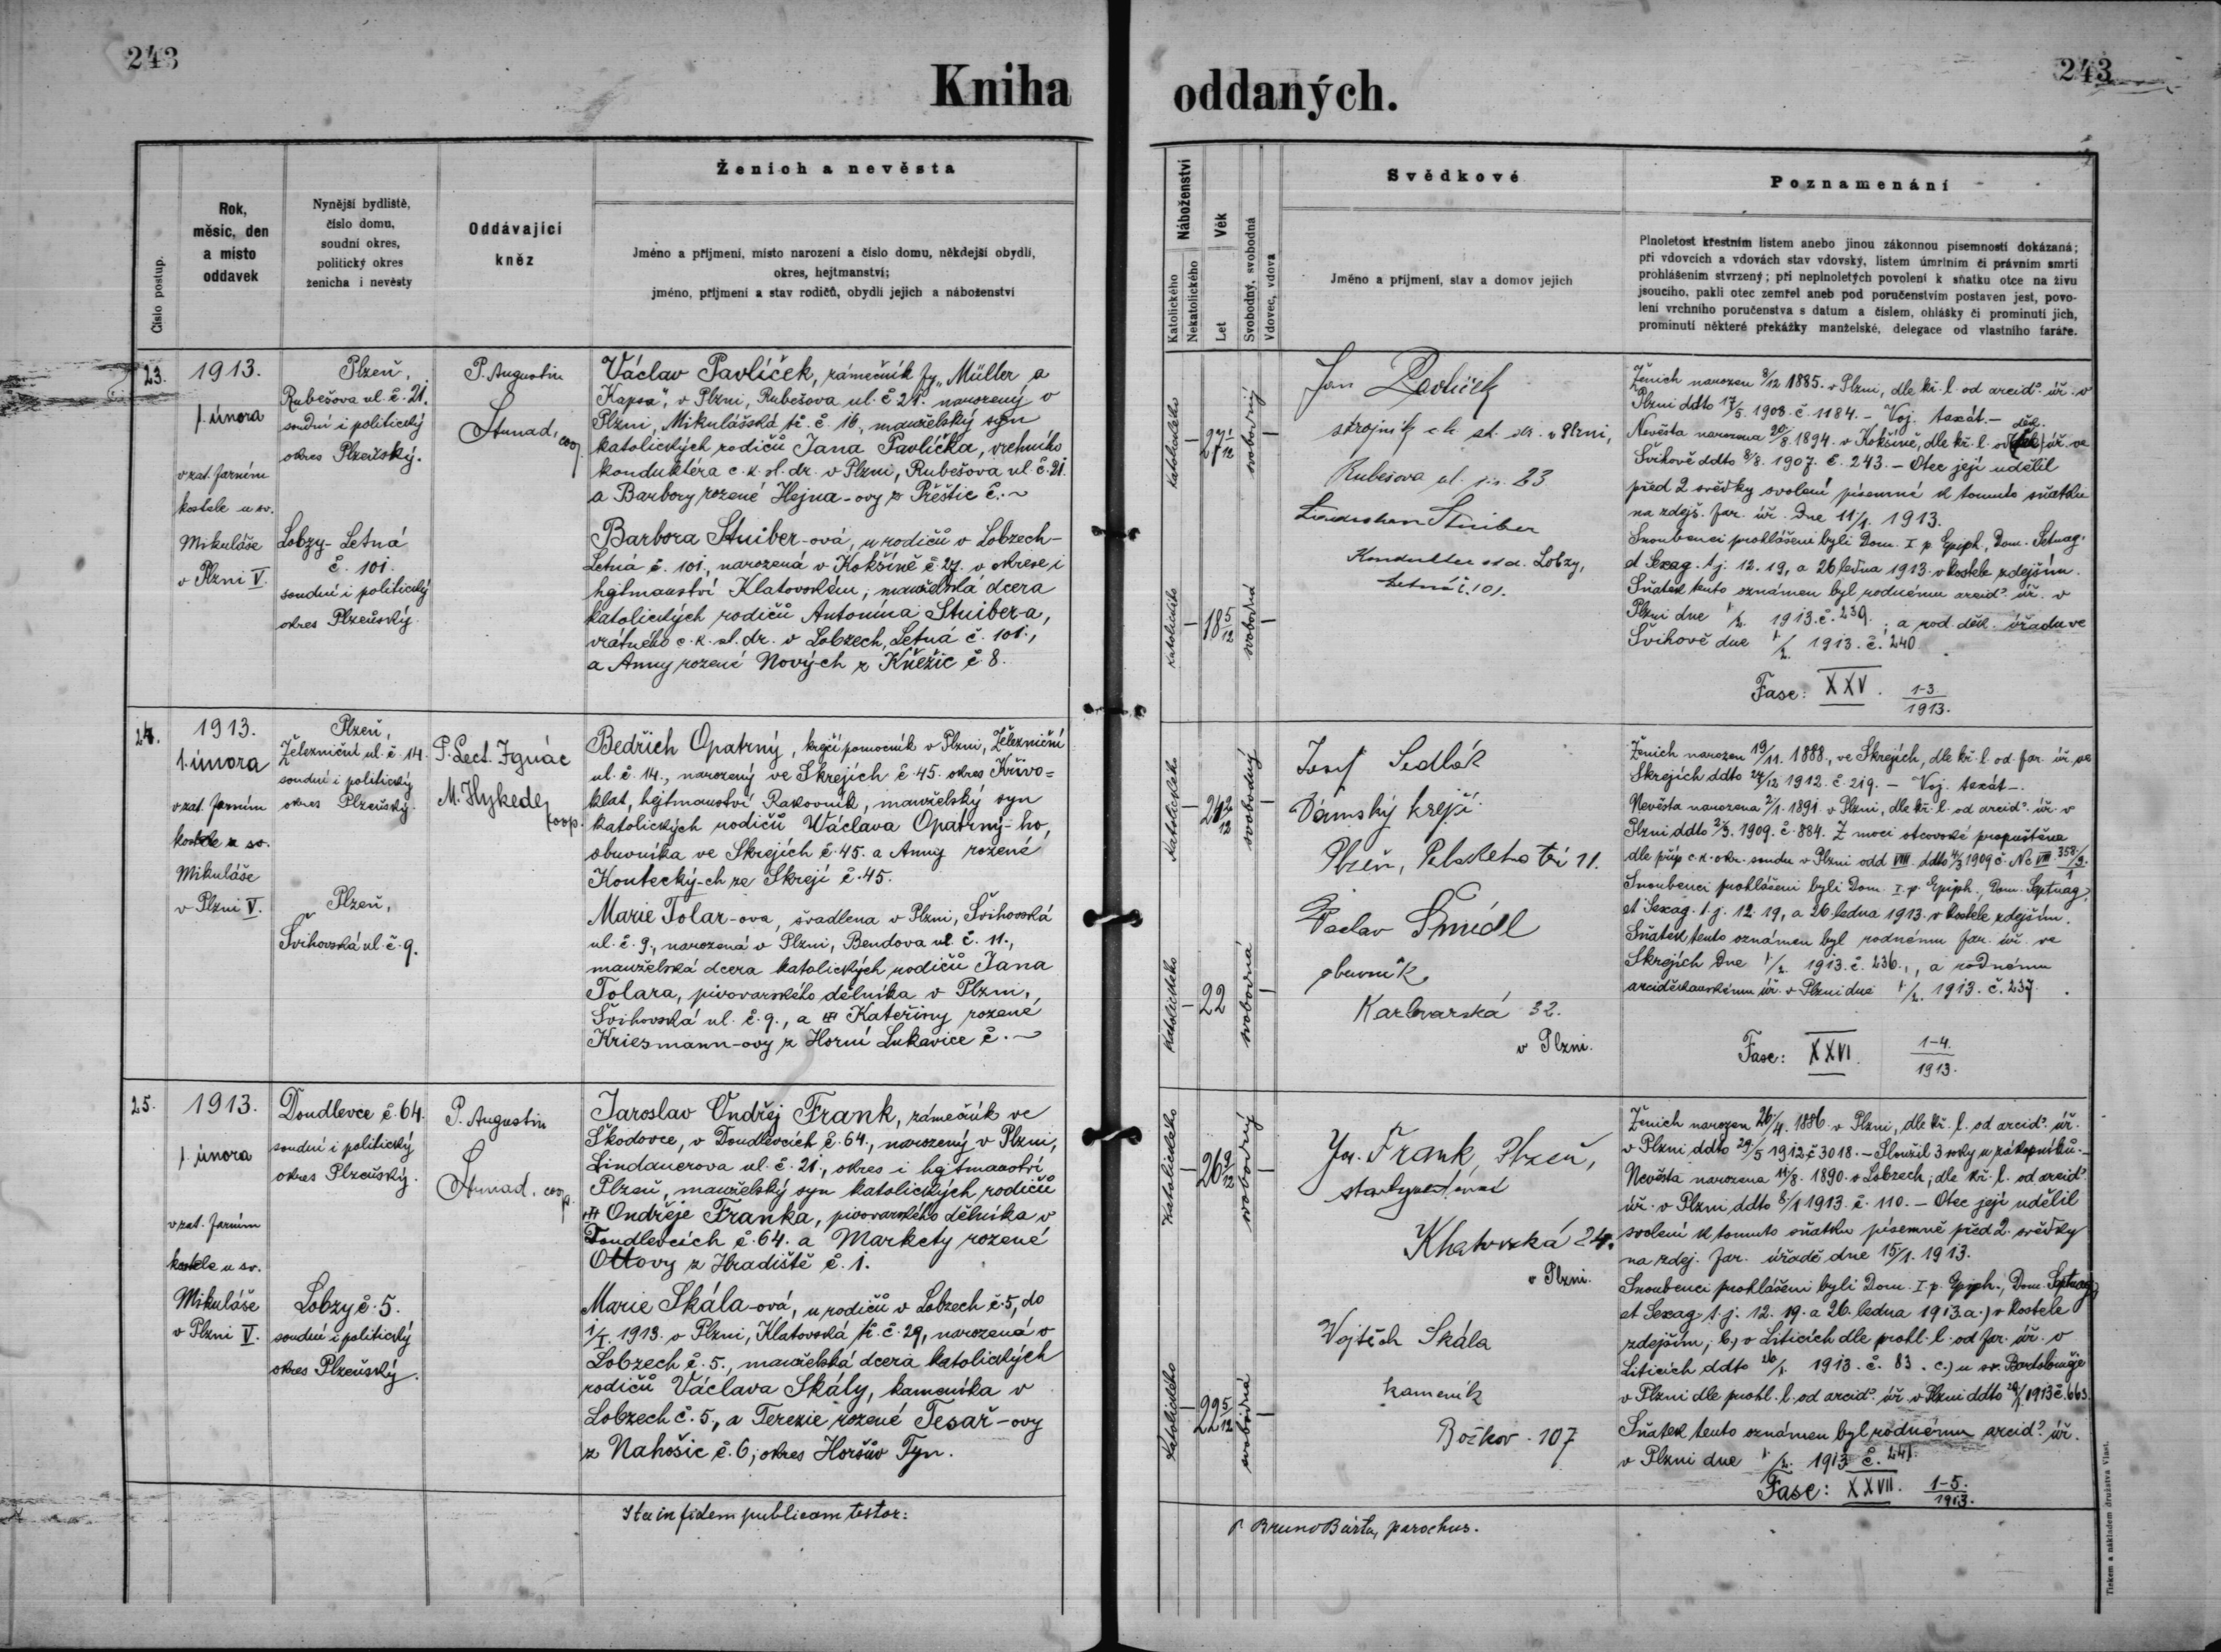 243
243
Kniha oddaných.
Číslo postup.
Rok,
měsíc, den
a místo
oddavek
Nynější bydliště,
číslo domu,
soudní okres,
politický okres
ženicha i nevěsty
Oddávající
kněz
Ženich a nevěsta
Jméno a příjmení, místo narození a číslo domu, někdejší obydlí,
okres, hejtmanství;
jméno, příjmení a stav rodičů, obydlí jejich a náboženství
Náboženství
Katolického
Nekatolického
Věk
Let
Svobodný, svobodná
Vdovec, vdova
Svědkové
Jméno a příjmení, stav a domov jejich
Poznamenání
Plnoletost křestním listem anebo jinou zákonnou písemností dokázaná;
při vdovcích a vdovách stav vdovský, listem úmrtním či právním smrti
prohlášením stvrzený; při neplnoletých povolení k sňatku otce na živu
jsoucího, pakli otec zemřel aneb pod poručenstvím postaven jest, povo-
lení vrchního poručenstva s datum a číslem, ohlášky či prominutí jich,
prominutí některé překážky manželské, delegace od vlastního faráře.
23.
1913.
1. února
v zat. farním
kostele u sv.
Mikuláše
v Plzni V.
Plzeň,
Rubešova ul. č. 21.
soudní i politický
okres Plzeňský.
Lobzy-Letná
č. 101.
soudní i politický
okres Plzeňský.
P. Augustin
coop.
Václav Pavlíček, zámečník fy „Müller a
Kapsa", v Plzni, Rubešova ul. č. 21. narozený v
Plzni, Mikulášská tř. č. 16., manželský syn
katolických rodičů Jana Pavlíčka, vrchního
konduktéra c. k. st. dr. v Plzni, Rubešova ul. č. 21.
a Barbory rozené Hejna-ovy z Přeštic č. ~
Barbora Stuiber-ová, u rodičů v Lobzech-
Letná č. 101., narozená v Kokšíně č. 27. v okrese i
hejtmanství Klatovském, manželská dcera
katolických rodičů Antonína Stuiber-a,
vrátného c. k. st. dr. v Lobzech, Letná č. 101.,
a Anny rozené Nových z Kněžic č. 8.
katolického
27 1/12
svobodný
katolického
18 5/12
svobodná
Jan Pavlíček
strojník c. k. st. dr. v Plzni,
Rubešova ul. 23
Stuiber
Lobzy,
Letná č. 101.
Ženich narozen 8/12 1885. v Plzni, dle kř. l. od arcid. úř. v
Plzni ddto 17/5. 1908. č. 1184. - Voj. taxát. -
Nevěsta narozena 20/8. 1894. v Kokšíně, dle kř. l. od děk. úř. ve
Švihově ddto 8/8. 1907. č. 243. - Otec její udělil
před 2 svědky svolení písemné k tomuto sňatku
na zdejš. far. úř. dne 11/1. 1913.
Snoubenci prohlášeni byli Dom. I p. Epiph., Dom. Septuag.
et Sexag. t. j. 12. 19, a 26 ledna 1913. v kostele zdejším.
Sňatek tento oznámen byl rodnému arcid. úř. v
Plzni dne 1/2. 1913. č. 239.; a rod. děk. úřadu ve
Švihově dne 1/2. 1913. č. 240.
Fasc: XXV. 1-3/1913.
24.
1913.
1. února
v zat. farním
kostele u sv.
Mikuláše
v Plzni V.
Plzeň,
Železniční ul. č. 14.
soudní i politický
okres Plzeňský.
Plzeň,
Švihovská ul. č. 9.
P. Lect. Ignác
M. Hykede,
koop.
Bedřich Opatrný, krejčí pomocník v Plzni, Železniční
ul. č. 14., narozený ve Skrejích č. 45. okres Křivo=
klat, hejtmanství Rakovník, manželský syn
katolických rodičů Václava Opatrný-ho,
obuvníka ve Skrejích č. 45. a Anny rozené
Koutecký-ch ze Skrejí č. 45.
Marie Tolar-ova, švadlena v Plzni, Švihovská
ul. č. 9., narozená v Plzni, Bendova ul. č. 11.,
manželská dcera katolických rodičů Jana
Tolara, pivovarského dělníka v Plzni,
Švihovská ul. č. 9., a Kateřiny rozené
Kriesmann-ovy z Horní Lukavice č. ~
Katolického
24 2/12
svobodný
Katolického
22
svobodná
Josef Sedlák
Dámský krejčí
Plzeň, tř. 11.
Václav Šmídl
obuvník
Karlovarská 32.
v Plzni.
Ženich narozen 19/11. 1888., ve Skrejích, dle kř. l. od. far. úř. ve
Skrejích ddto 24/12 1912. č. 219. - Voj. taxát. -
Nevěsta narozena 2/1. 1891. v Plzni, dle kř. l. od arcid. úř. v
Plzni ddto 2/3. 1909. č. 884. Z moci otcovské propuštěna
dle příp. c. k. okr. soudu v Plzni odd VIII. ddto 4/3 1909 č. Nc VIII 358/9/1
Snoubenci prohlášeni byli Dom. I. p. Epiph., Dom. Septuag.
et Sexag. t. j. 12. 19., a 26. ledna 1913. v kostele zdejším.
Sňatek tento oznámen byl rodnému far. úř. ve
Skrejích dne 1/2. 1913. č. 236., a rodnému
arciděkanskému úř. v Plzni dne 1/2. 1913. č. 237.
Fasc: XXVI. 1-4./1913.
25.
1913.
1. února
v zat. farním
kostele u sv.
Mikuláše
v Plzni V.
Doudlevce č. 64.
soudní i politický
okres Plzeňský.
Lobzy č. 5.
soudní i politický
okres Plzeňský.
P. Augustin
coop.
Jaroslav Ondřej Frank, zámečník ve
Škodovce, v Doudlevcích č. 64., narozený v Plzni,
Lindauerova ul. č. 21., okres i hejtmanství
Plzeň, manželský syn katolických rodičů
Ondřeje Franka, pivovarského dělníka v
Doudlevcích č. 64. a Markéty rozené
Ottovy z Hradiště č. 1.
Marie Skála-ová, u rodičů v Lobzech č. 5, do
1/I. 1913. v Plzni, Klatovská tř. č. 29, narozená v
Lobzech č. 5., manželská dcera katolických
rodičů Václava Skály, kameníka v
Lobzech č. 5, a Terezie rozené Tesař-ovy
z Nahošic č. 6, okres Horšův Tyn.
Katolického
26 9/12
svobodný
Katolického
22 5/12
svobodná
Frank, Plzeň,
Khatovská 24.
v Plzni.
Vojtěch Skála
kameník
Božkov 107
Ženich narozen 26/4. 1886. v Plzni, dle kř. l. od arcid. úř.
v Plzni ddto 29/5 1912 č 3018. - Sloužil 3 roky u zákopníků. -
Nevěsta narozena 11/8. 1890. v Lobzech, dle kř. l. od arcid.
úř. v Plzni ddto 8/1 1913. č. 110. - Otec její udělil
svolení k tomuto sňatku písemně před 2. svědky
na zdej. far. úřadě dne 15/1. 1913.
Snoubenci prohlášeni byli Dom. I p. Epiph., Dom. Septuag.
et Sexag. t. j. 12. 19. a 26. ledna 1913. a.) v kostele
zdejším, b.) v Liticích dle prohl. l. od far. úř. v
Liticích ddto 26/1. 1913. č. 83. c.) u sv. Bartoloměje
v Plzni dle prohl. l. od arcid. úř. v Plzni ddto 26/1 1913 č. 663.
Sňatek tento oznámen byl rodnému arcid. úř.
v Plzni dne 1/2. 1913 č. 241.
Fasc: XXVII. 1-5./1913.
Ita in fidem publicam testor:
P. Bruno Bárta, parochus.
Tiskem a nákladem družstva Vlast.